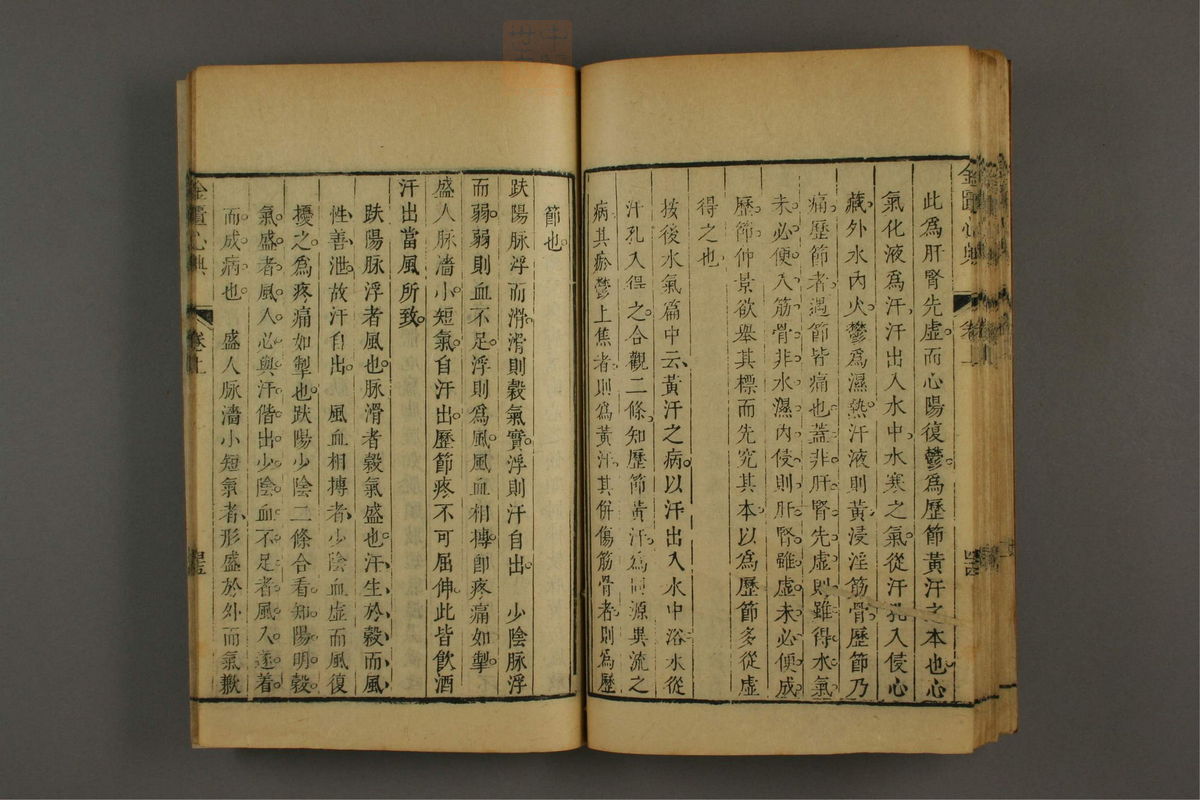 金匱心典
卷上
此為肝腎先虛而心陽復鬱為歷節黃汗之本也心
氣化液為汗汗出入水中水寒之氣從汗孔入侵心
藏外水內火鬱為濕熱汗液則黃浸淫筋骨歷節乃
痛歷節者遇節皆痛也蓋非肝腎先虛則雖得水氣
未必便入筋骨非水濕內侵則肝腎雖虛未必便成
歷節仲景欲舉其標而先究其本以為歷節多從虛
得之也
按後水氣篇中云黃汗之病以汗出入水中浴水從
汗孔入得之合觀二條知歷節黃汗為同源異流之
病其瘀鬱上焦者則為黃汗其併傷筋骨者則為歷
節也
趺陽脉浮而滑滑則穀氣實浮則汗自出 少陰脉浮
而弱弱則血不足浮則為風風血相摶卽疼痛如掣
盛人脉濇小短氣自汗出歷節疼不可屈伸此皆飲酒
汗出當風所致
趺陽脉浮者風也脉滑者穀氣盛也汗生於穀而風
性善泄故汗自出 風血相摶者少陰血虛而風復
擾之為疼痛如掣也趺陽少陰二條合看知陽明穀
氣盛者風入必與汗偕出少陰血不足者風入遂着
而成病也 盛人脉濇小短氣者形盛於外而氣歉
金匱心典
卷上